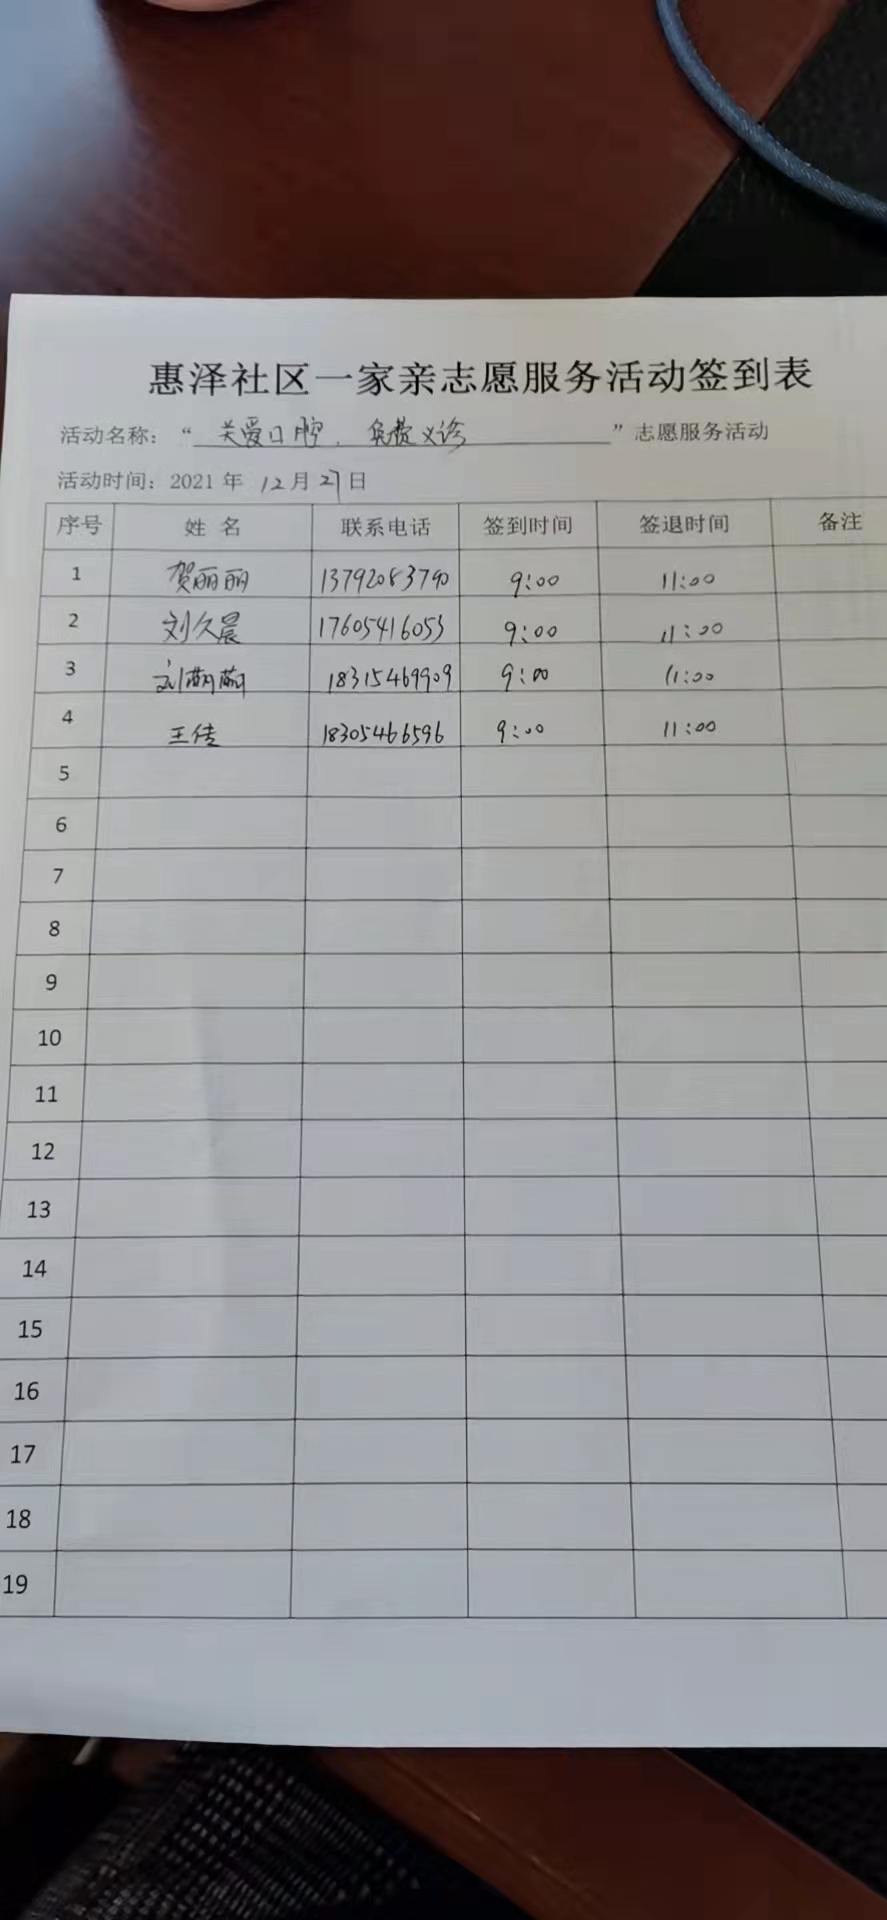 惠泽社区一家亲志愿服务活动签到表
活动名称：“关爱口腔.免费义诊”志愿服务活动
活动时间：2021 年 12月27日
序号 姓 名 联系电话 签到时间 签退时间 备注
1 贺丽丽 13792083790 9:00 11:00
2 刘久晨 17605416053 9:00 11:00
3 刘萌萌 18315469909 9:00 11:00
4 王传 18305466596 9:00 11:00
5
6
7
8
9
10
11
12
13
14
15
16
17
18
19